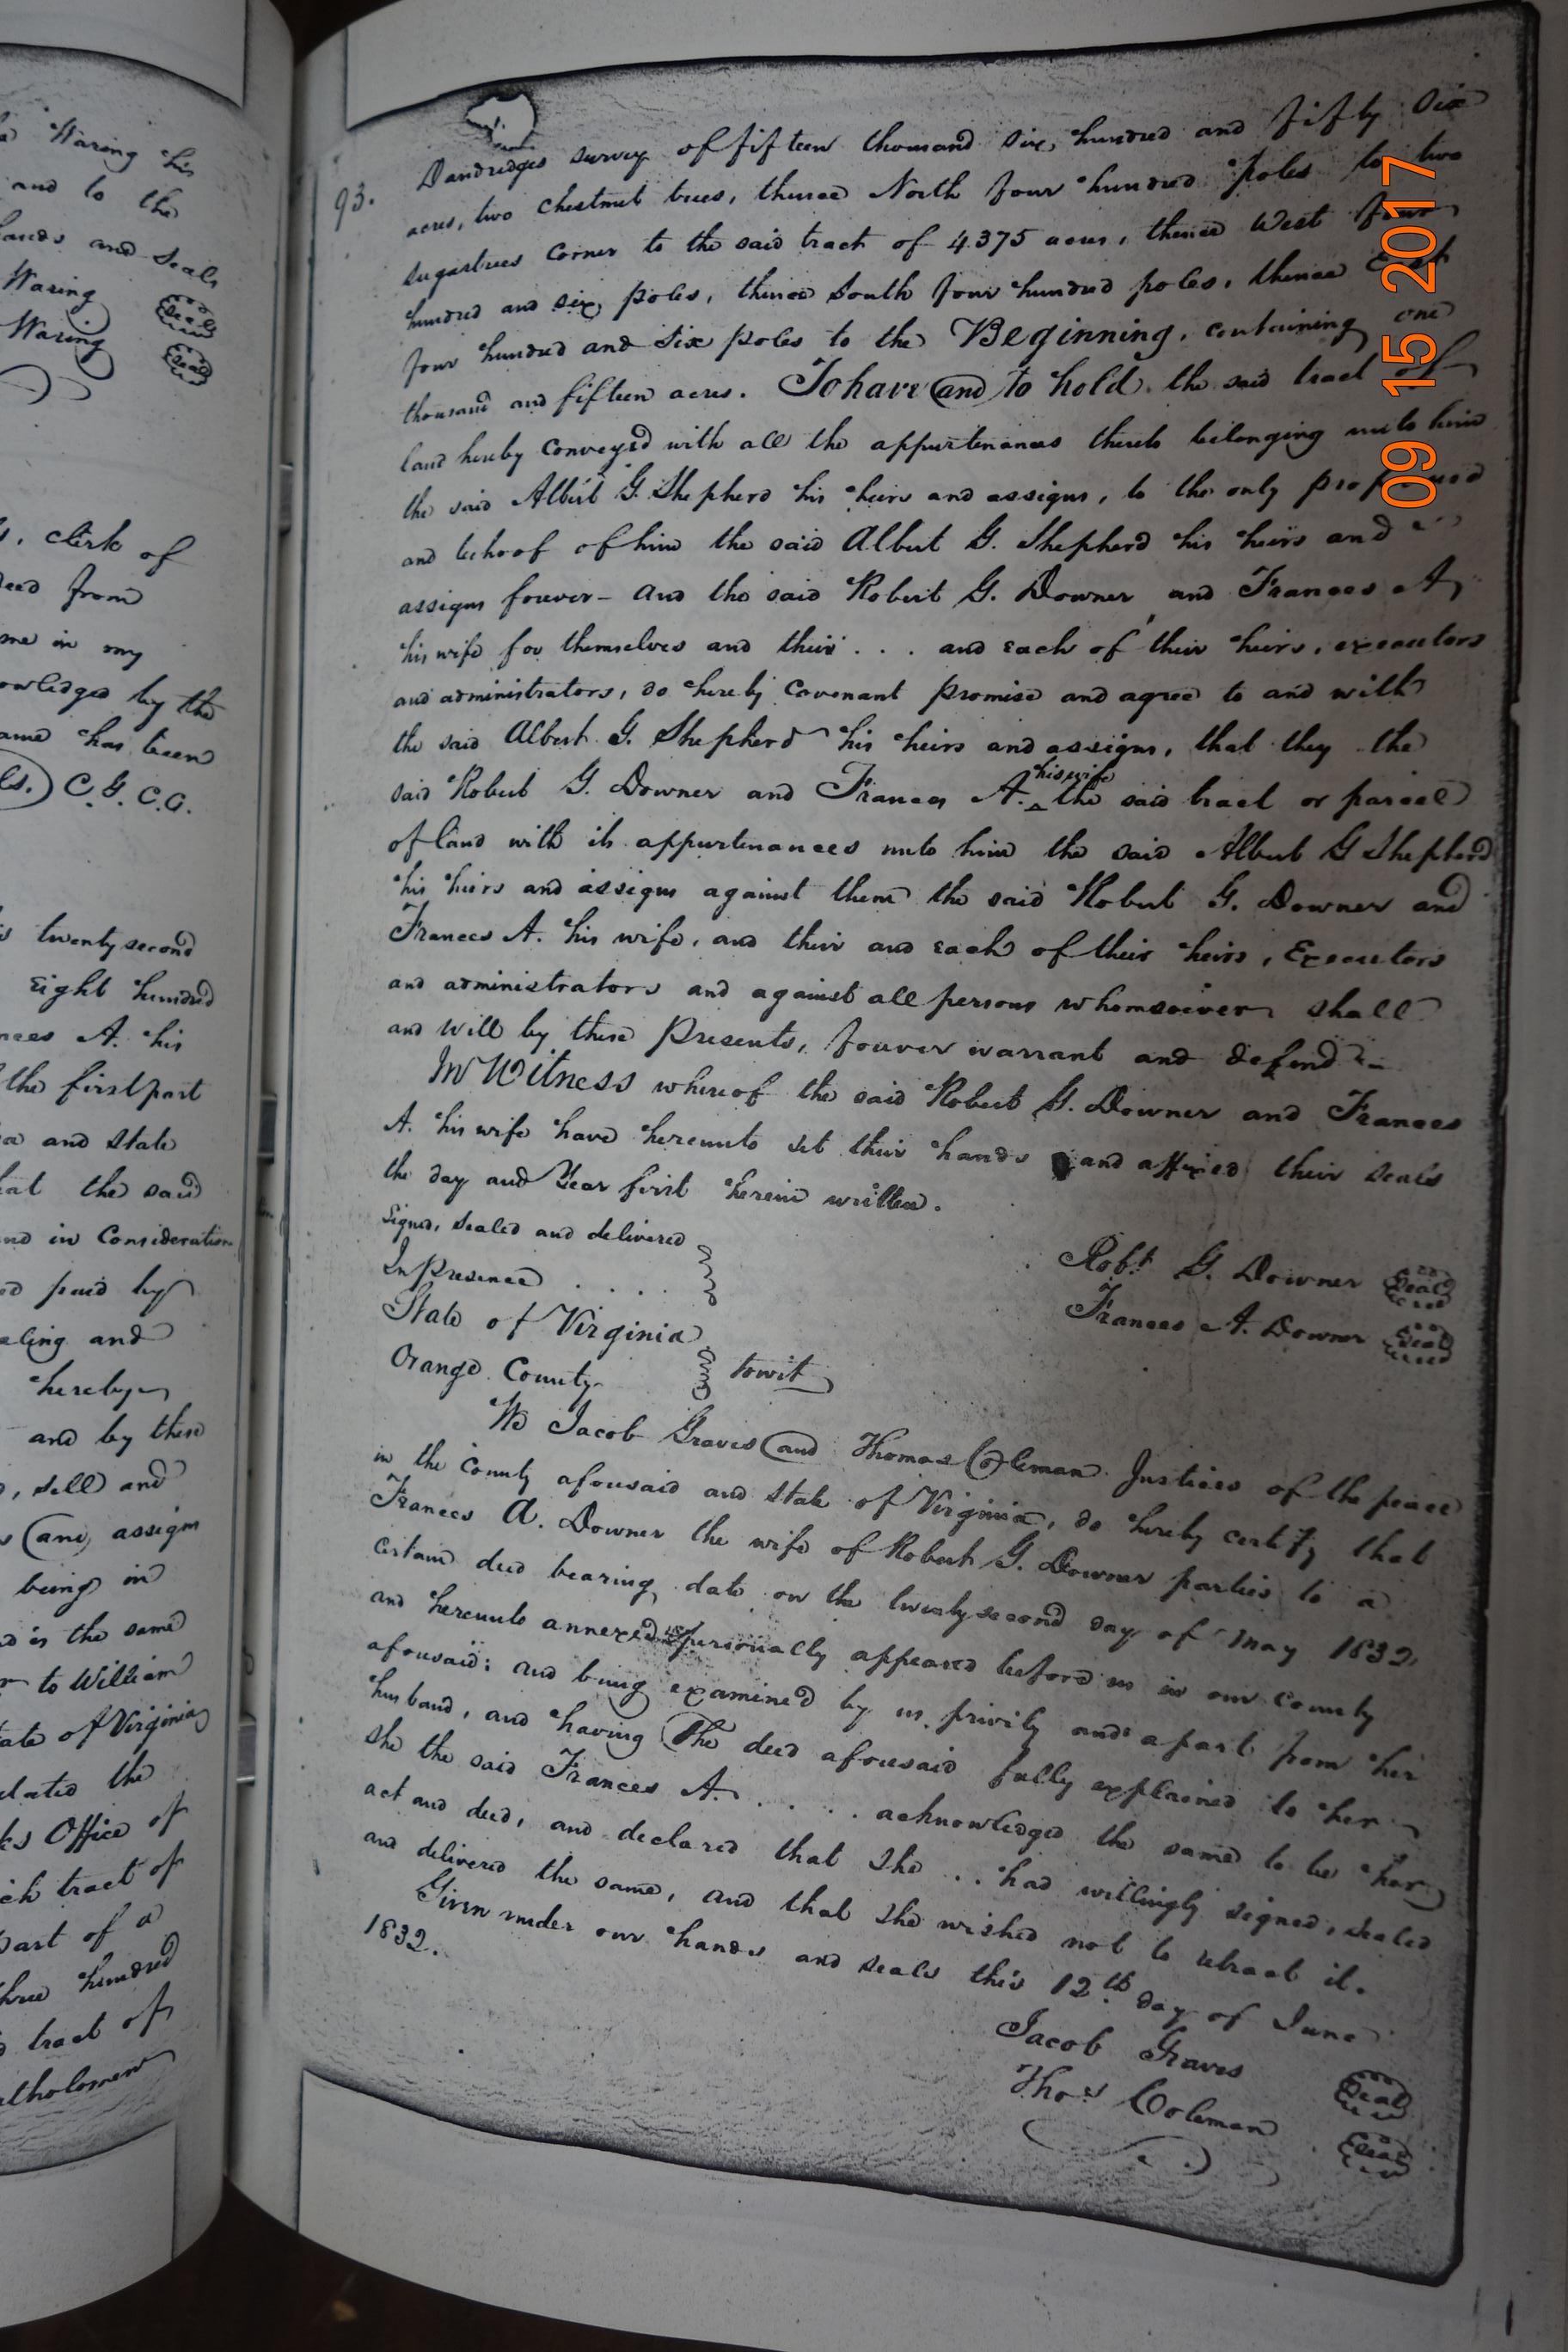 Waring his
and to the
hands and Seals
Waring Seal
Waring Seal
clerk of
deed from
me in my
by the
has been
C. G. C. C.
twenty second
Eight hundred
A. his
the first part
and State
the said
and in Consideration
paid by
and
hereby
and by these
sell and
and assigns
being in
is the same
to William
of Virginia
the
Office of
tract of
part of a
hundred
tract of
93.
Dandridges survey of fifteen thousand six hundred and fifty six
acres, two chestnut trees, thence North four hundred poles to two
sugartrees corner to the said tract of 4375 acres, thence West four
hundred and six poles, thence South four hundred poles, thence East
four hundred and six poles to the Beginning, containing one
thousand and fifteen acres. To have and to hold the said tract of
land hereby conveyed with all the appurtenances thereto belonging unto him
the said Albert G. Shepherd his heirs and assigns, to the only proper use
and behoof of him the said Albert G. Shepherd his heirs and
assigns forever - And the said Robert G. Downer and Frances A,
his wife for themselves and their . . . and each of their heirs, executors
and administrators, do hereby covenant promise and agree to and with
the said Albert G. Shepherd his heirs and assigns, that they the
said Robert G. Downer and Frances A. his wife the said tract or parcel
of land with its appurtenances unto him the said Albert G Shepherd
his heirs and assigns against them the said Robert G. Downer and
Frances A. his wife, and their and each of their heirs, Executors
and administrators and against all persons whomsoever shall
and will by these Presents, forever warrant and defend -
In Witness whereof the said Robert G. Downer and Frances
A. his wife have hereunto set their hands and affixed their seals
the day and Year first herein written.
Signed, Sealed and delivered
In Presence . . . .
Robt. G. Downer Seal
Frances A. Downer Seal
State of Virginia
Orange County towit
We Jacob Graves and Thomas Coleman Justices of the peace
in the County aforesaid and state of Virginia, do hereby certify that
Frances A. Downer the wife of Robert G. Downer parties to a
certain deed bearing date on the twenty second day of May 1832,
and hereunto annexed personally appeared before us in our County
aforesaid; and being examined by us privily and apart from her
husband, and having The deed aforesaid fully explained to her
she the said Frances A. . . . . acknowledged the same to be her
act and deed, and declared that she . . had willingly signed, sealed
and delivered the same, and that she wished not to retract it.
Given under our hands and seals this 12th day of June
1832.
Jacob Graves Seal
Thos Coleman Seal
09 15 2017